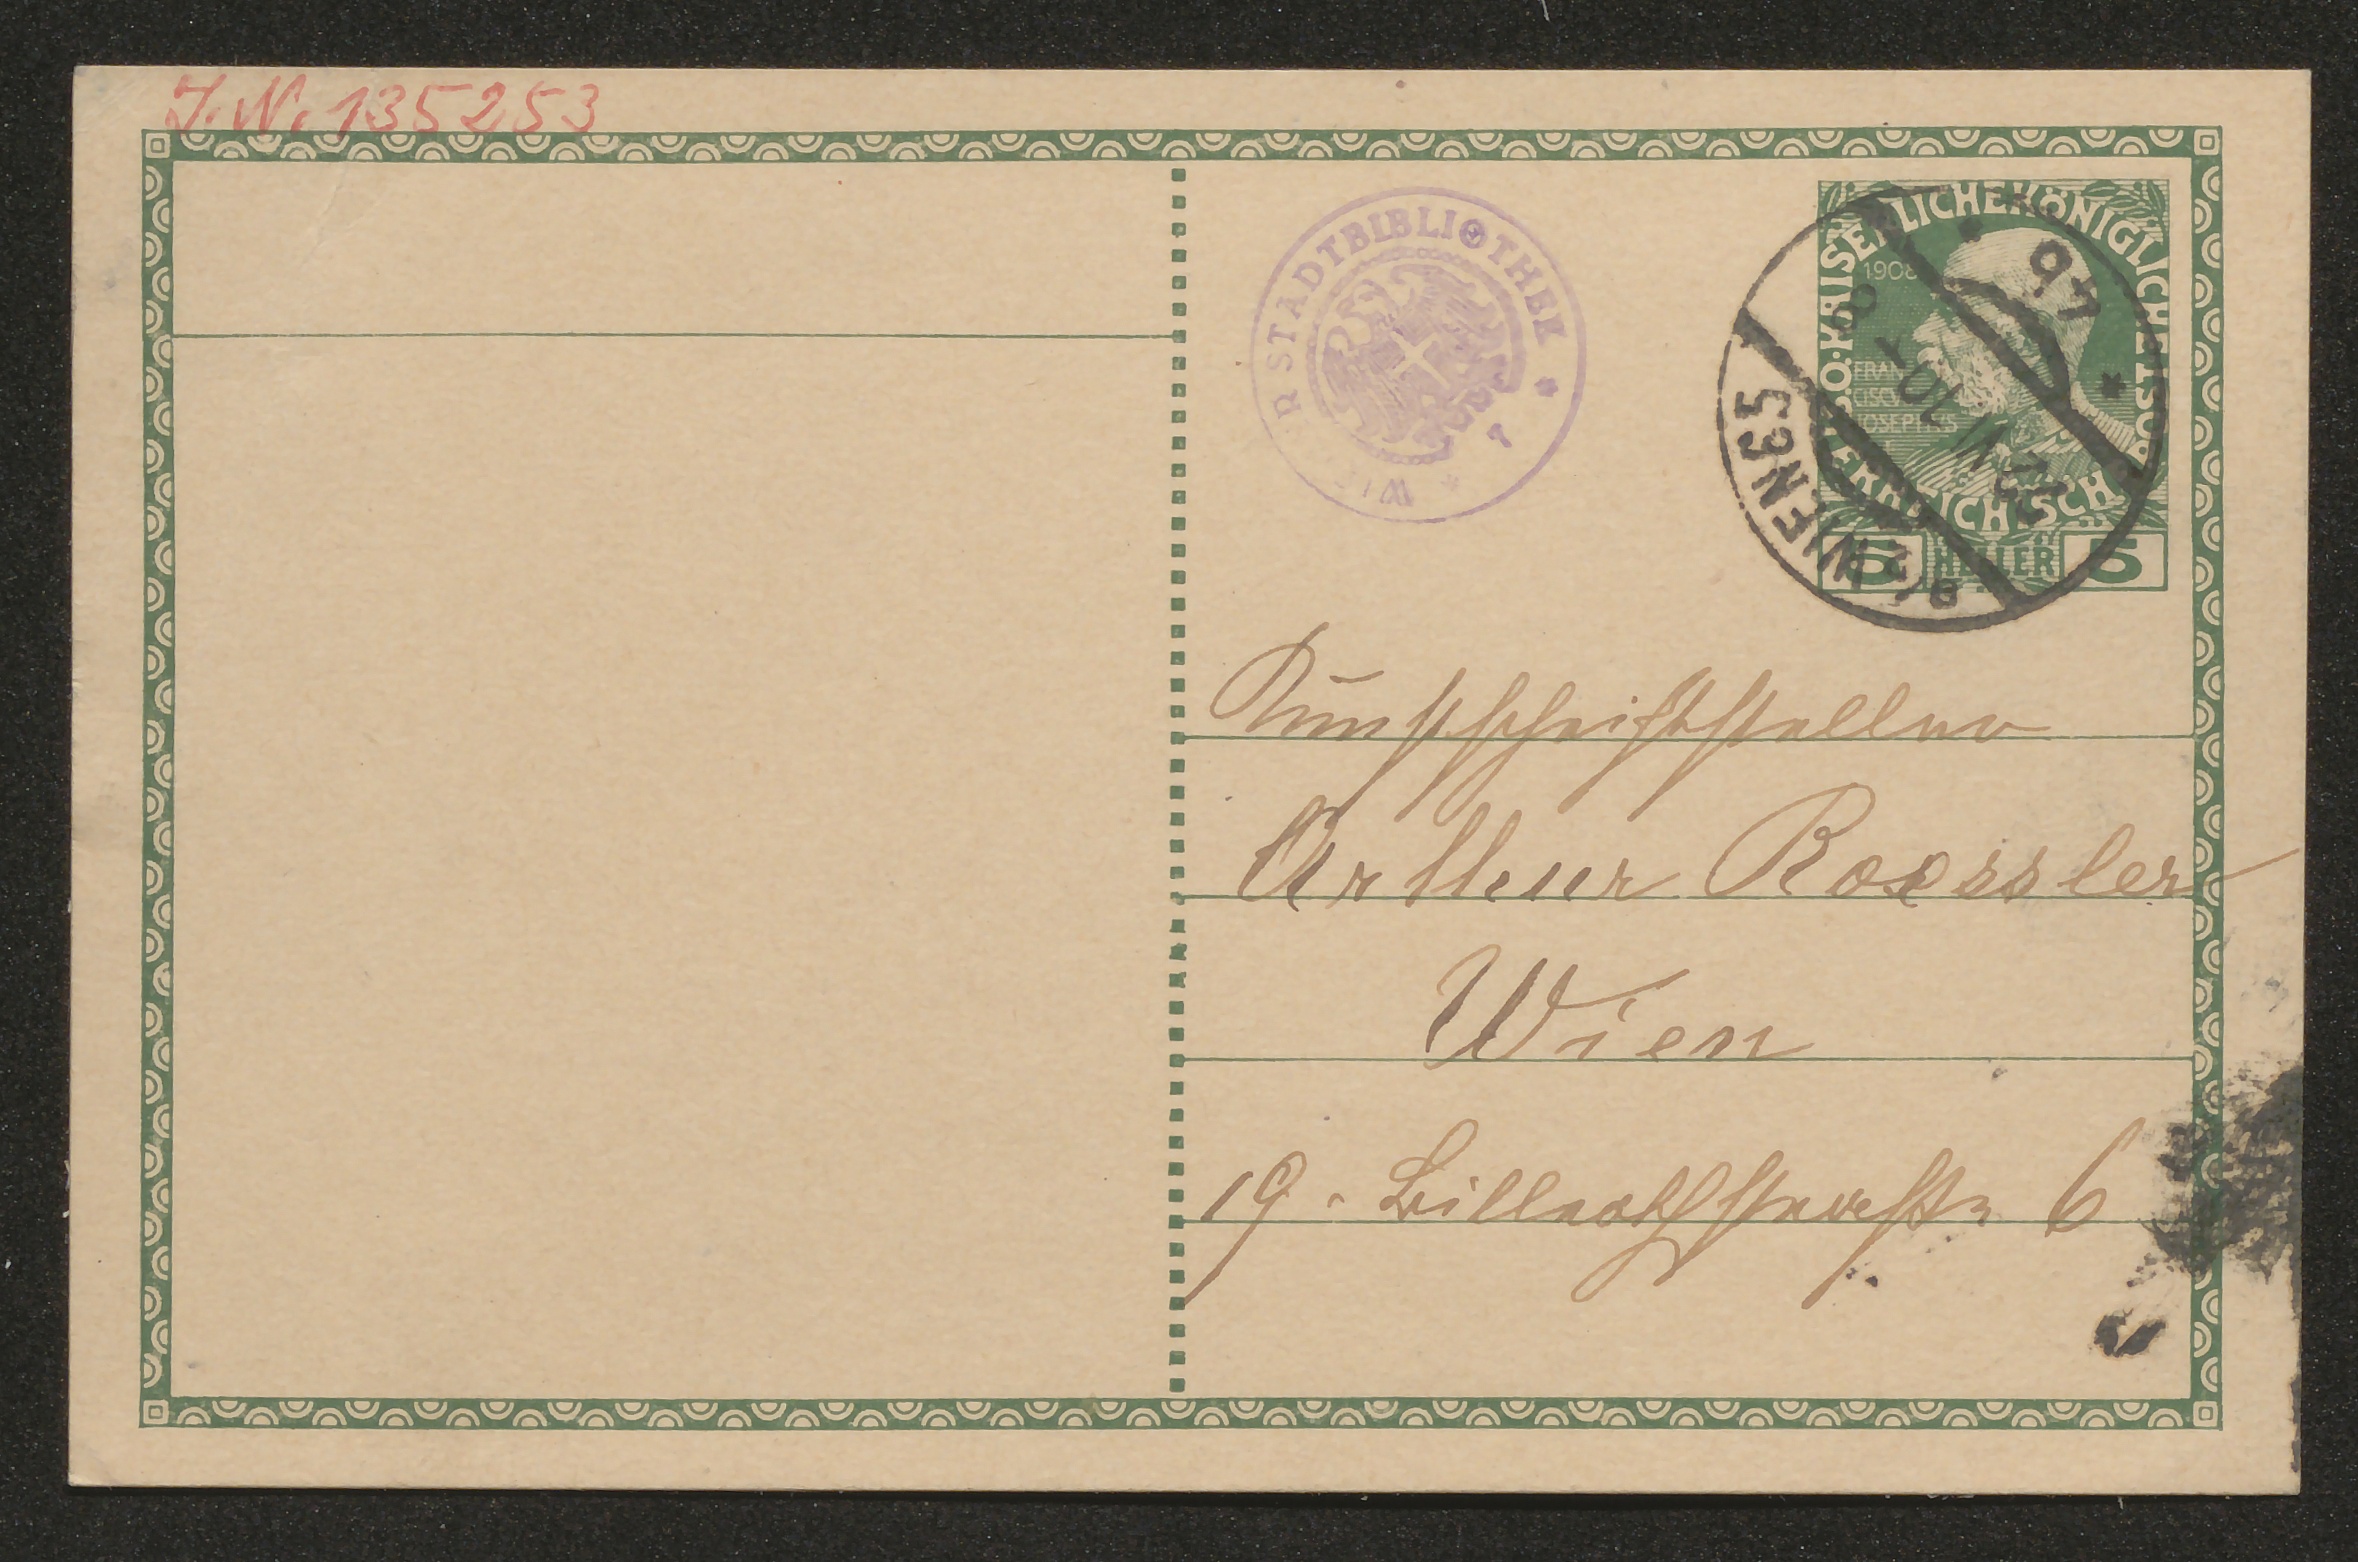 J.N. 135253
STADTBIBLIOTHEK * WIENER *
KAISERLICHE KÖNIGLICHE ÖSTERREICHISCHE
1908
FRAN
CISC
IOSEPHVS
5 HELLER 5
9/1 WIEN 65
22 V 10
* 9b *
Kunstschriftsteller
Arthur Roessler
Wien
19. Billrothstrasse 6